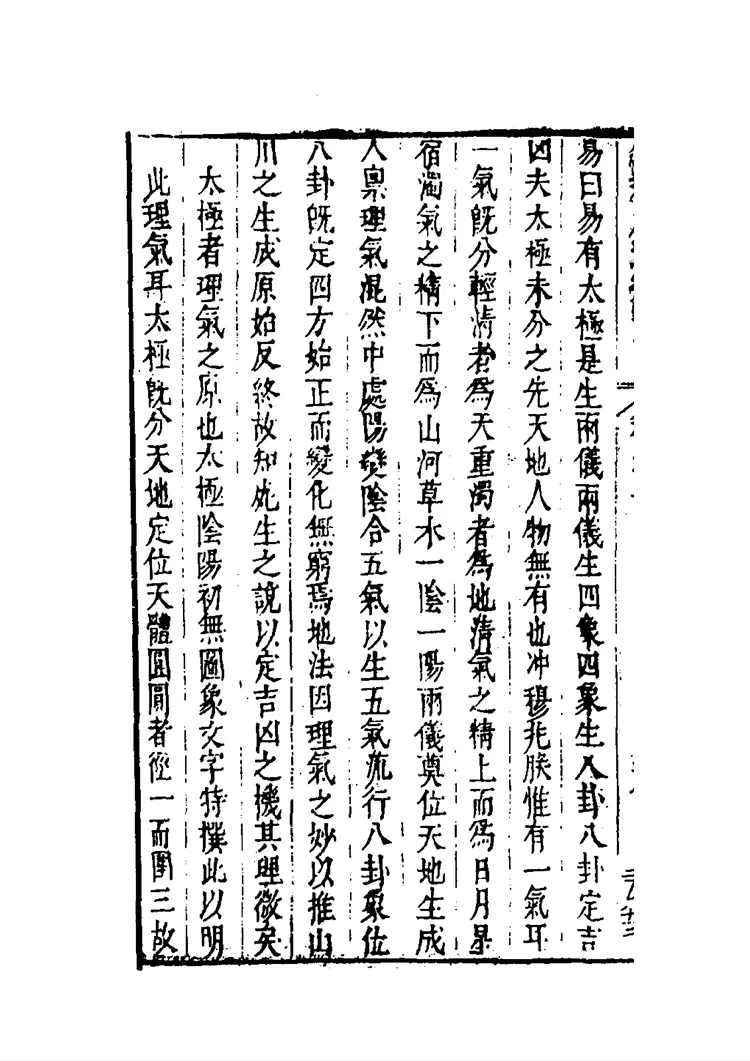 易曰易有太極是生兩儀兩儀生四象四象生八卦八卦定吉
凶夫太極未分之先天地人物無有也冲穆兆朕惟有一氣耳
一氣旣分輕清者爲天重濁者爲地清氣之精上而爲日月星
宿濁氣之精下而爲山河草木一陰一陽兩儀奠位天地生成
人稟理氣混然中處陽變陰合五氣以生五氣流行八卦象位
八卦旣定四方始正而變化無窮焉地法因理氣之妙以推山
川之生成原始反終故知死生之說以定吉凶之機其理微矣
太極者理氣之原也太極陰陽初無圖象文字特撰此以明
此理氣耳太極旣分天地定位天體圓圓者徑一而圍三故